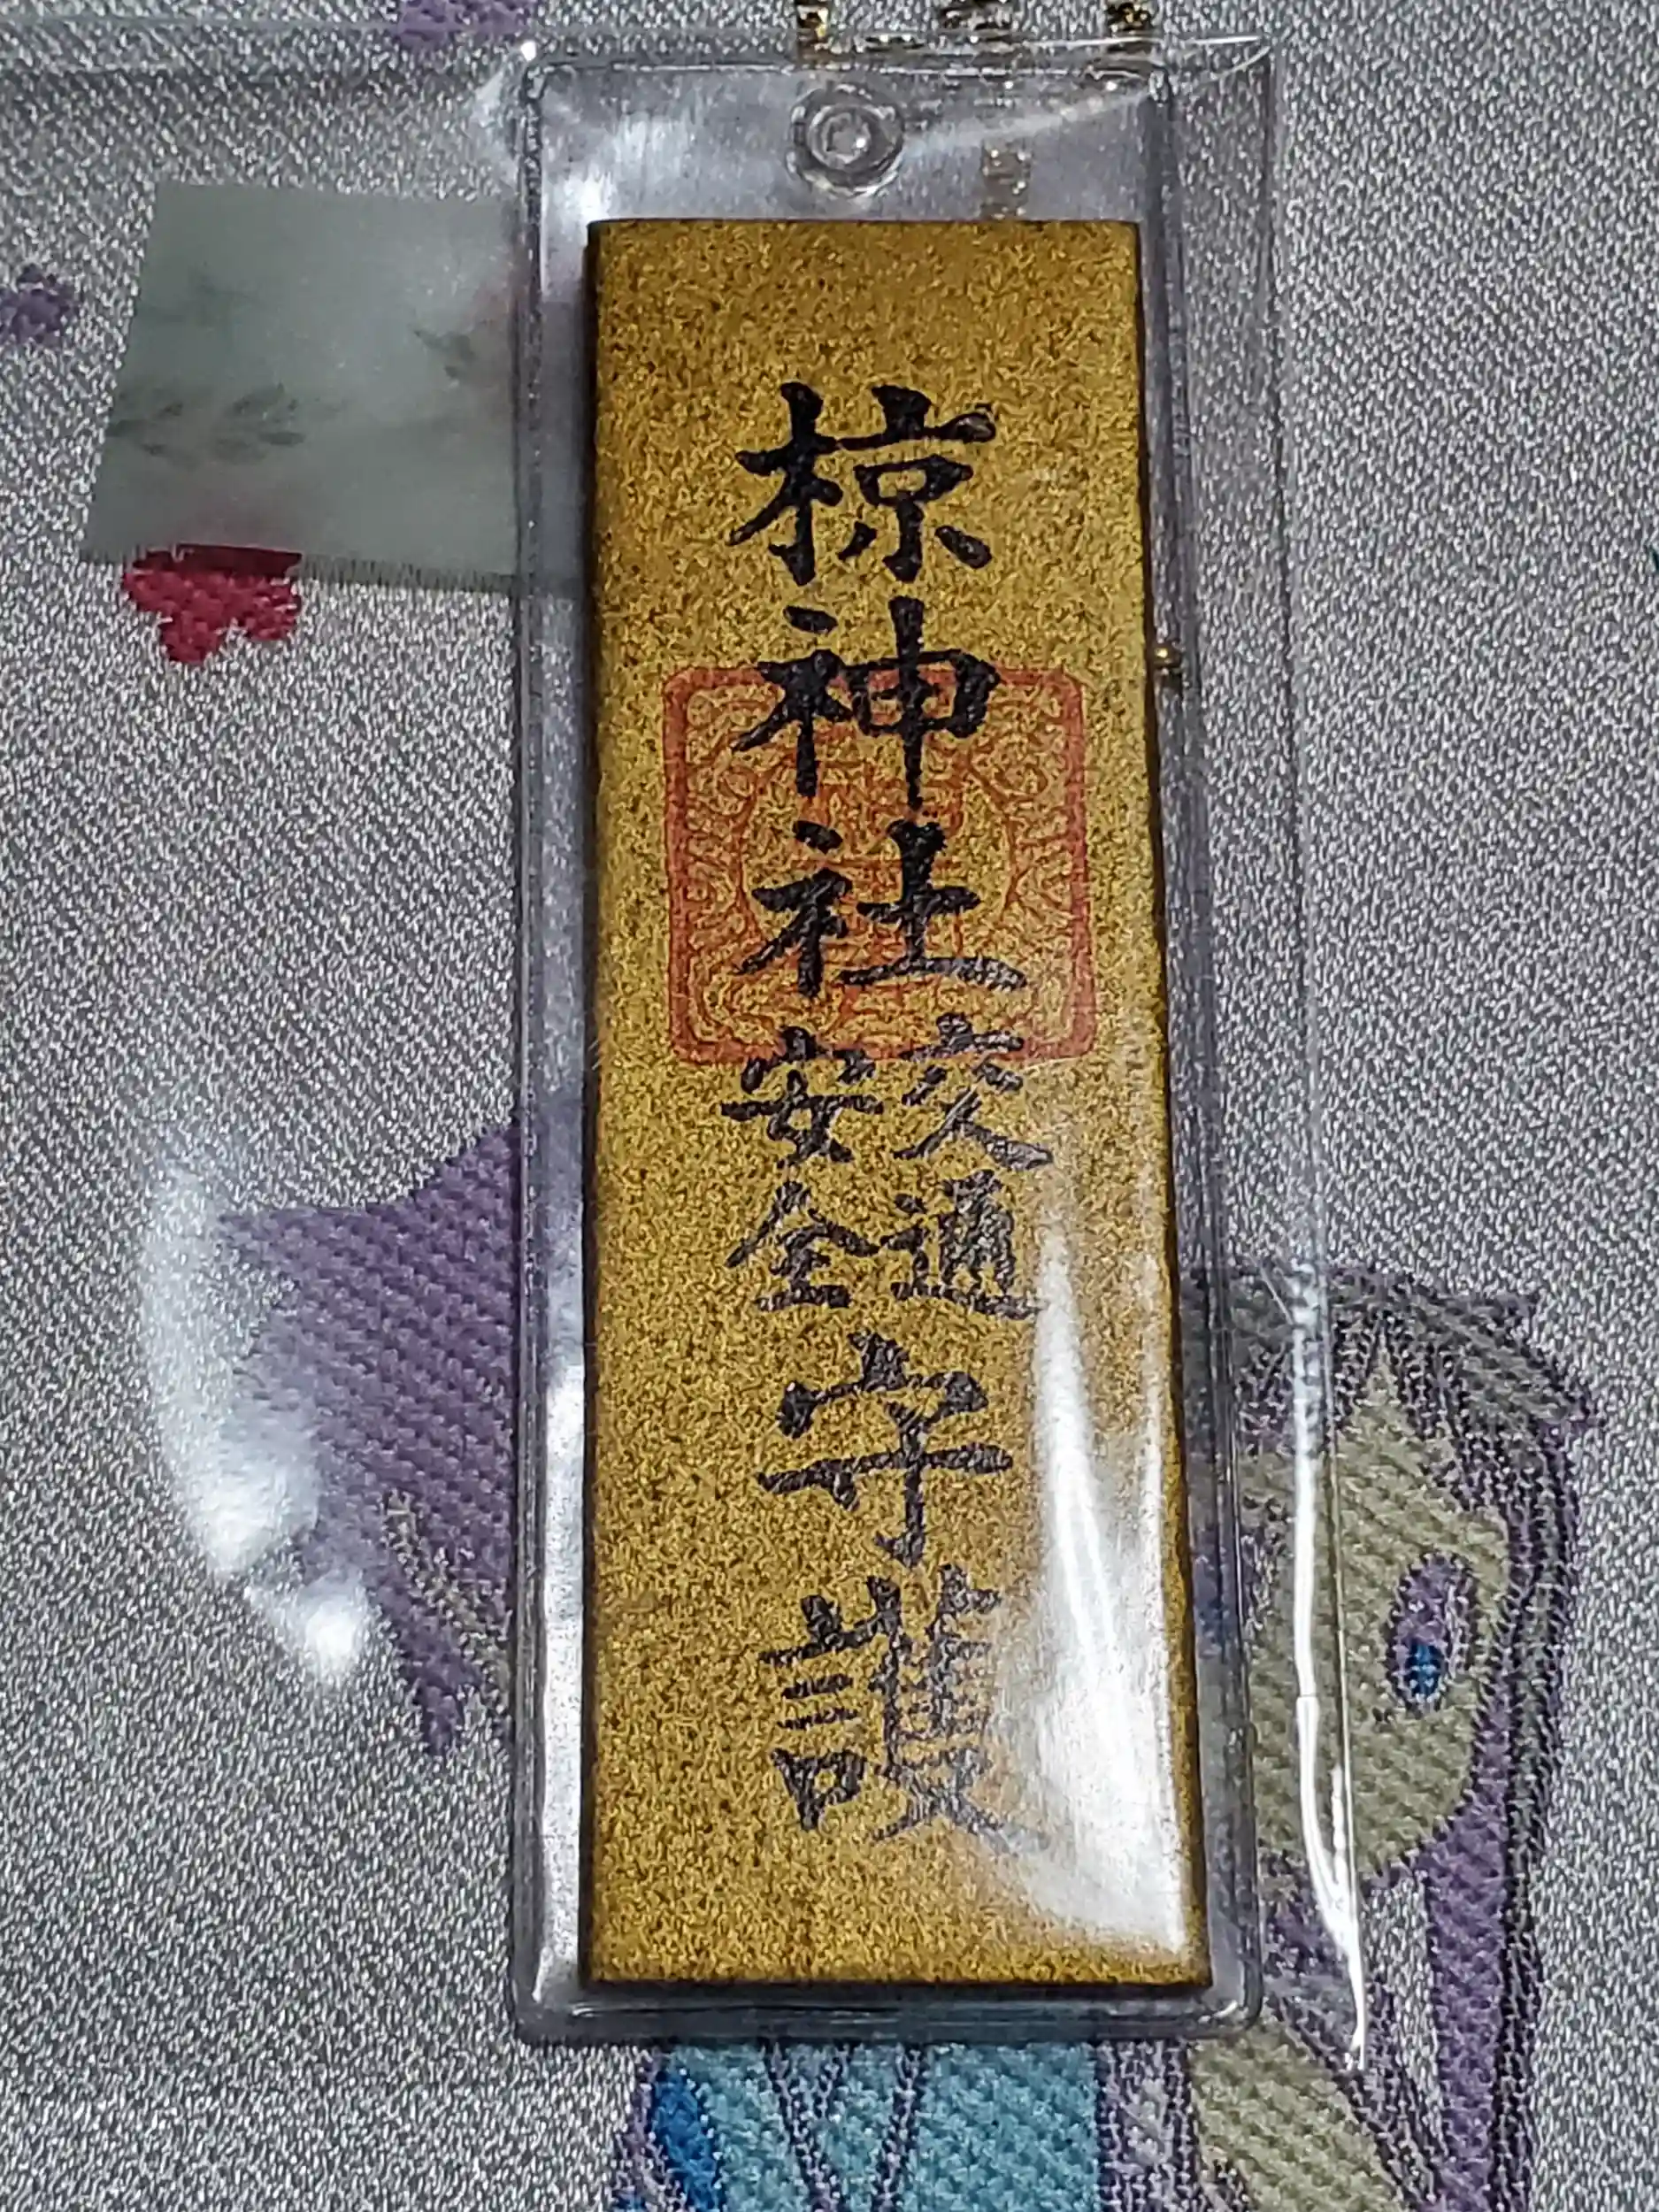 椋神社
交通
安全
守護